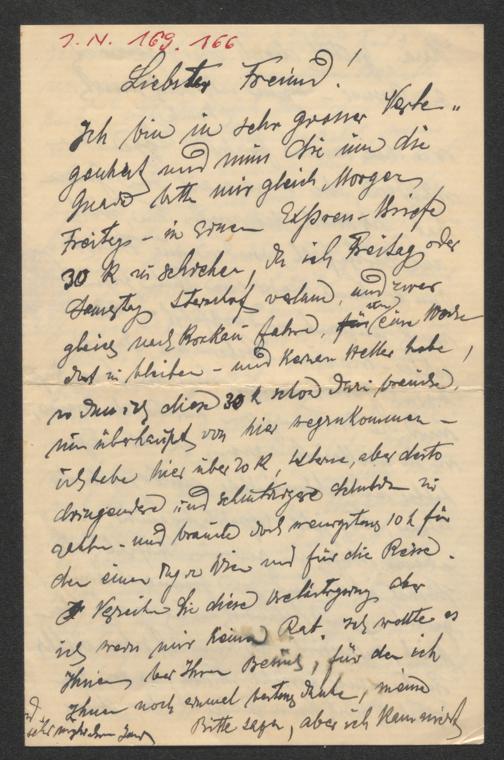 I. N. 169. 166
Liebster Freund!
Ich bin in sehr grosser Verle„
genheit und muss Sie um die
Gnade bitten mir gleich Morgen
Freitag – in einem Express-Briefe
30 K zu schicken, da ich Freitag oder
Samstag verlasse, und zwar
gleich nach fahre, um eine Woche
dort zu bleiben – und keinen Heller habe,
so dass ich diese 30 K schon dazu brauche,
um überhaupt von hier wegzukommen –
ich habe hier über 20 K, kleine, aber desto
dringendere und Schulden zu
zahlen – und brauche doch wenigstens 10 K für
den einen Tag in Wien und für die Reise.
Verzeihen Sie diese Belästigung aber
ich weiss mir keinen Rat. Ich wollte es
Ihnen bei Ihrem Besuch, für den ich
Ihnen noch einmal danke, meine
Bitte sagen, aber ich kann nicht